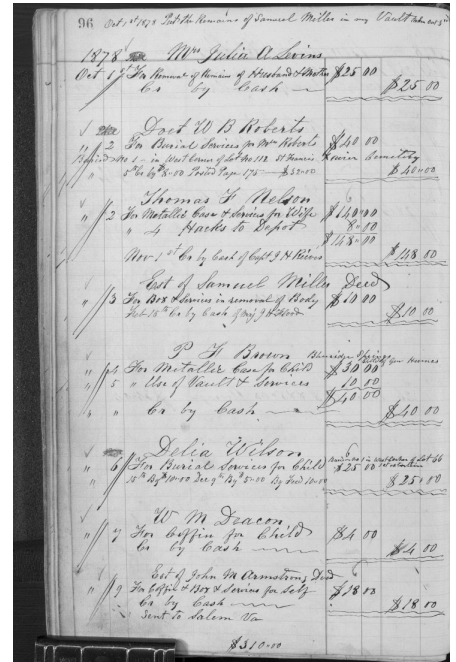 96 Oct 1st 1878 Put the Remains of Samuel Miller in my Vault Taken out 3rd
1878 Mrs Julia A Levins
Oct 1st For Removal of Remains of Husband & Mother $25 00
Cr by Cash $25 00
Doct W B Roberts
" 2 For Burial Services for Mrs Roberts $40 00
Buried No 1 - in West Corner of Lot No 112 St Francis Xavier Cemetery
5th Cr By 8.00 Posted Page 175 $32.00 $40.00
Thomas F Nelson
" 2 For Metallic Case & Services for Wife $140.00
" " 4 Hacks to Depot 8.00
$148.00
Nov 1st Cr by Cash of Capt J H $148 00
Est of Samuel Miller Decd
" 3 For Box & Services in removal of Body $10 00
18th Cr by Cash of J H $10 00
P F Brown
" 4 For Metallic Case for Child $30 00
" 5 " Use of Vault & Services 10 00
$40 00
" " Cr by Cash $40 00
Delia Wilson
" 6 For Burial Services for Child $25 00
15th By $10.00 Dec 9th By 5.00 By 10.00 $25.00
W M Deacon
" 7 For Coffin for Child $4 00
Cr by Cash $4 00
Est of John M Armstrong Decd
" 9 For Coffin & Box & Services for Self $18 00
Cr by Cash $18 00
Sent to Salem Va
$310.00